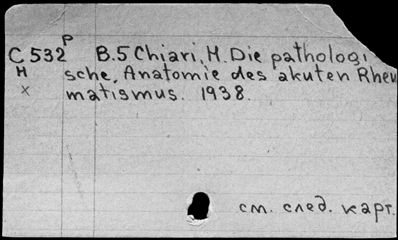 P
C 532 B.5 Chiari, H. Die pathologi
H sche, Anatomie des akuten Rheu
x matismus. 1938.
см. след. карт.